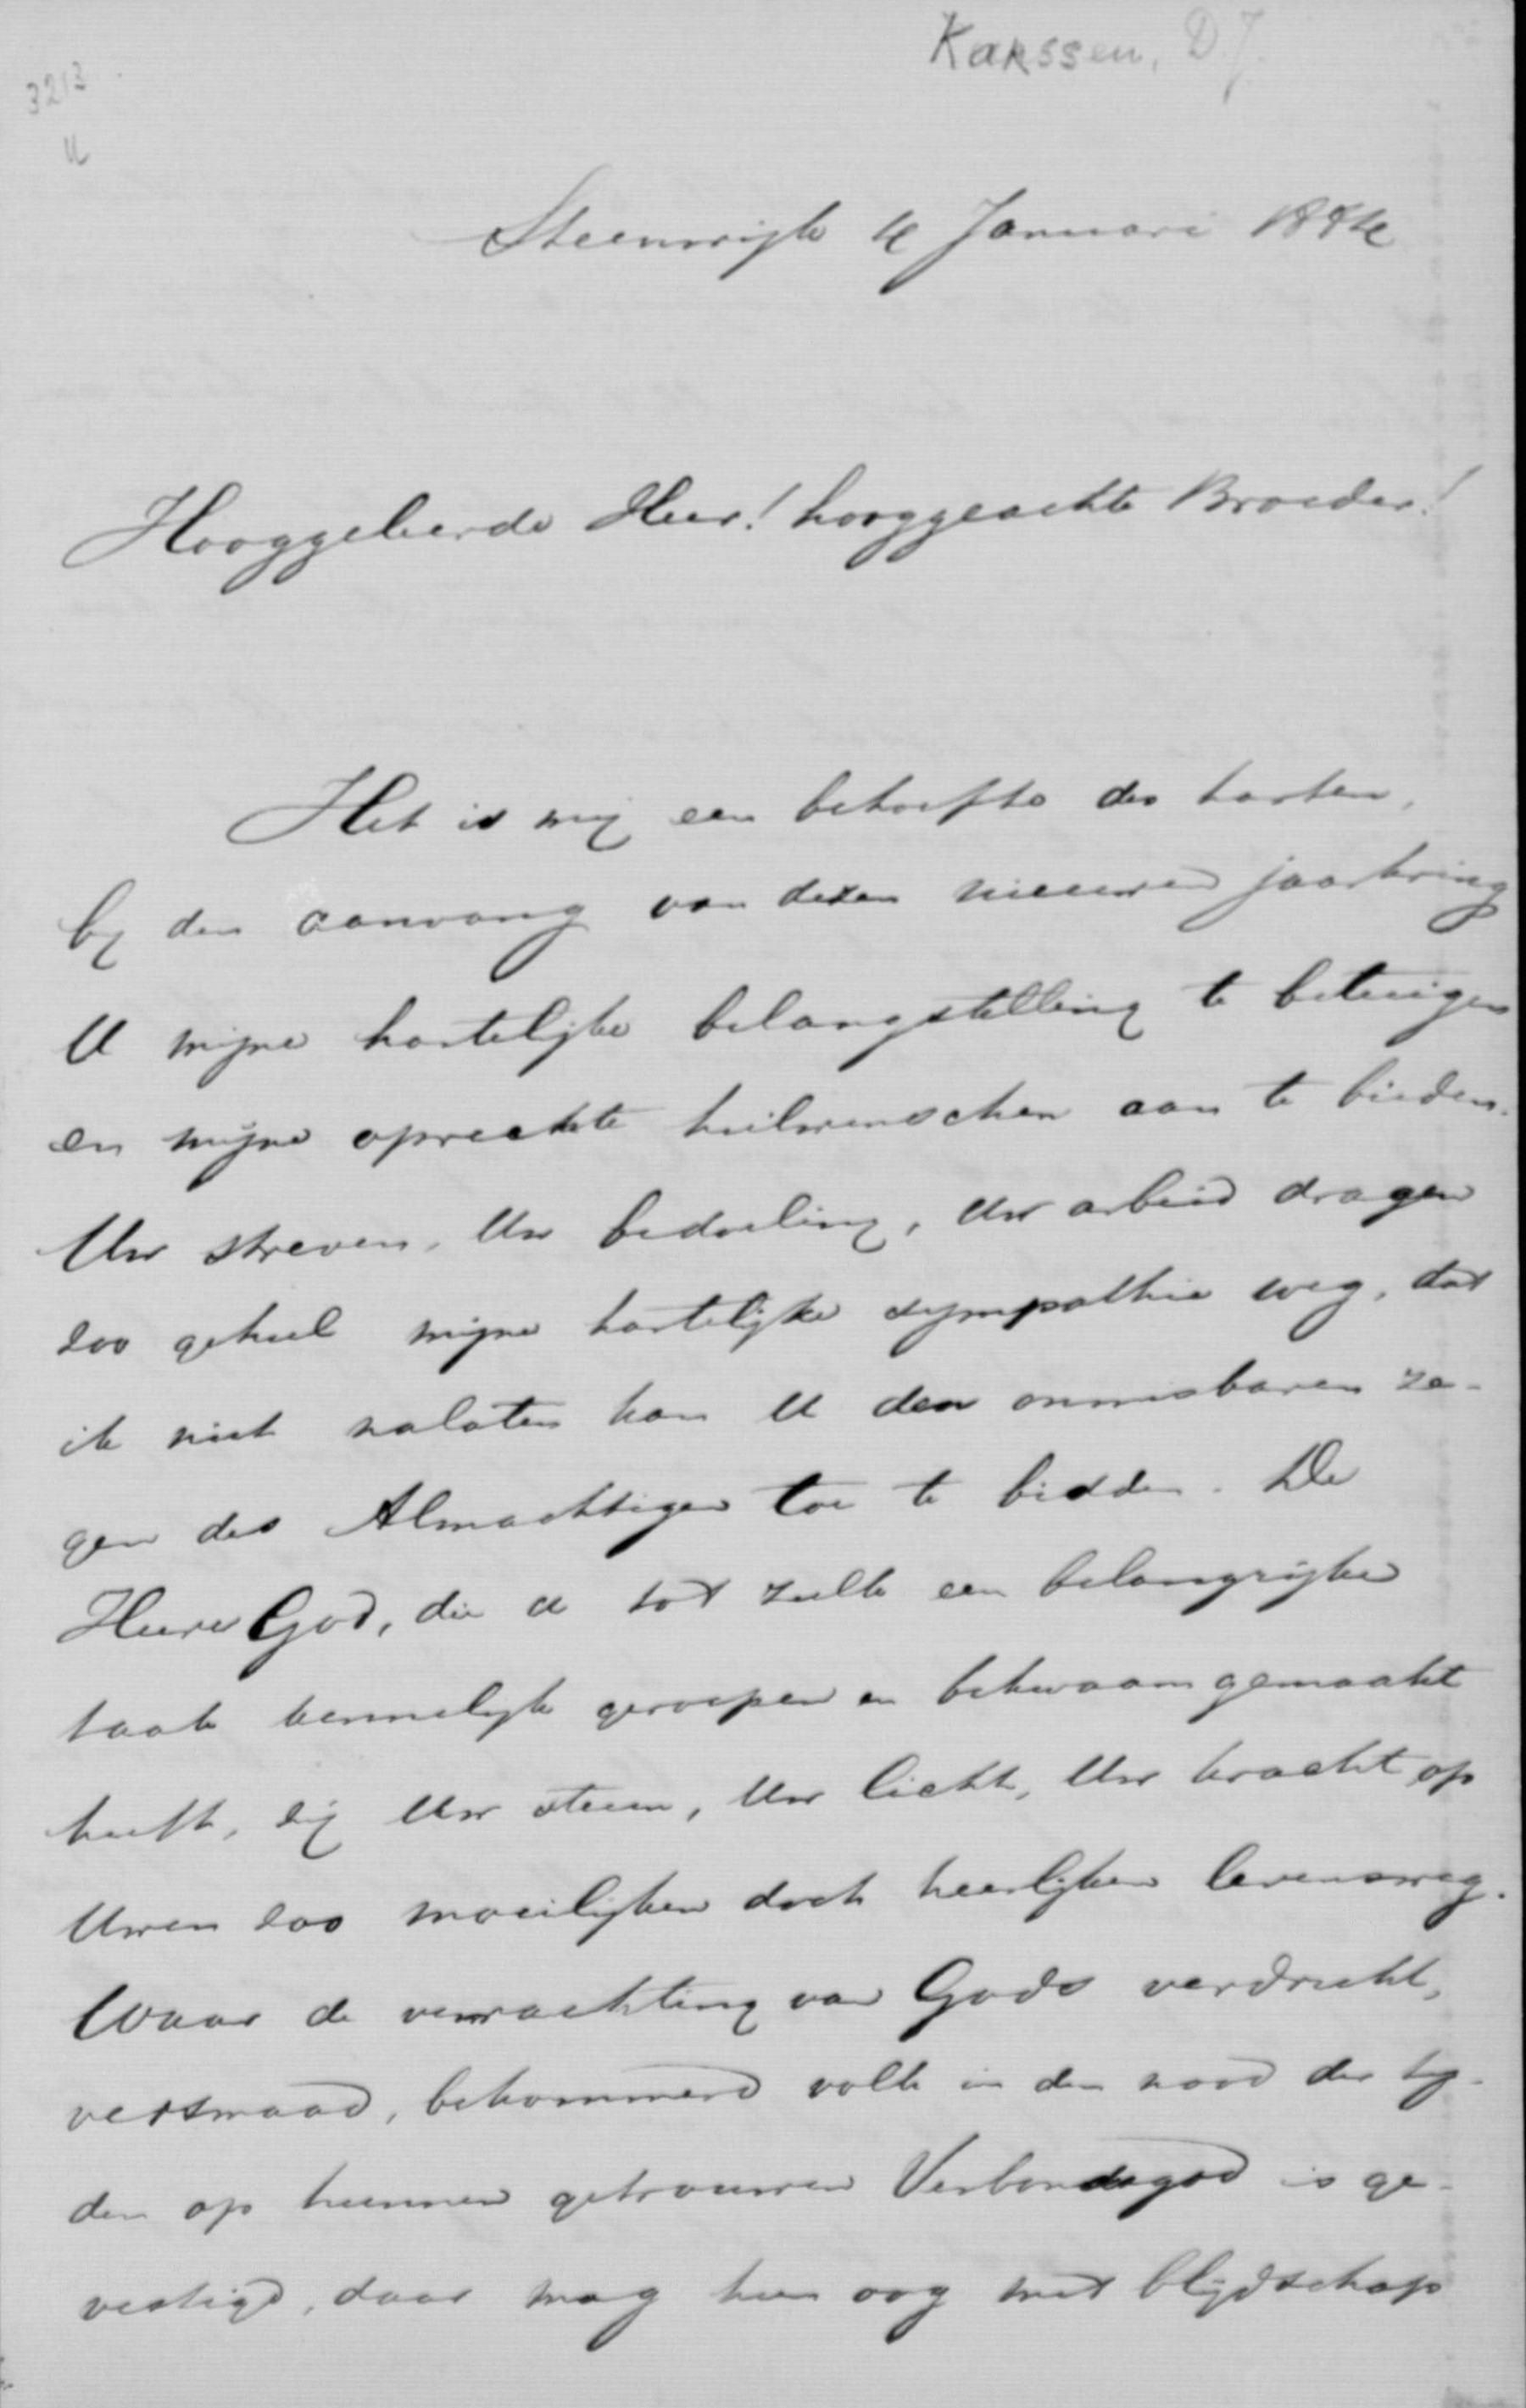 Karssen, D.J.
3213
U
Steenwijk 4 Januari 1884
Hooggeleerde Heer! hooggeachte Broeder!
Het is mij een behoefte des harten,
bij den aanvang van dezen nieuwen jaarkring
U mijne hartelijke belangstelling te betuigen
en mijne oprechte heilwenschen aan te bieden.
Uw streven, Uw bedoeling, Uw arbeid dragen
zoo geheel mijne hartelijke sympathie weg, dat
ik niet nalaten kan U den onmisbaren ze-
gen des Almachtigen toe te bidden. De
Heere God, die U tot zulk een belangrijke
taak kennelijk geroepen en bekwaam gemaakt
heeft, zij Uw steun, Uw licht, Uw kracht op
Uwen zoo moeilijken doch heerlijken levensweg.
Waar de verwachting van Gods verdrukt,
versmaad, bekommerd volk in den nood der tij-
den op hunnen getrouwen Verbondsgod is ge-
vestigd, daar mag hun oog met blijdschap